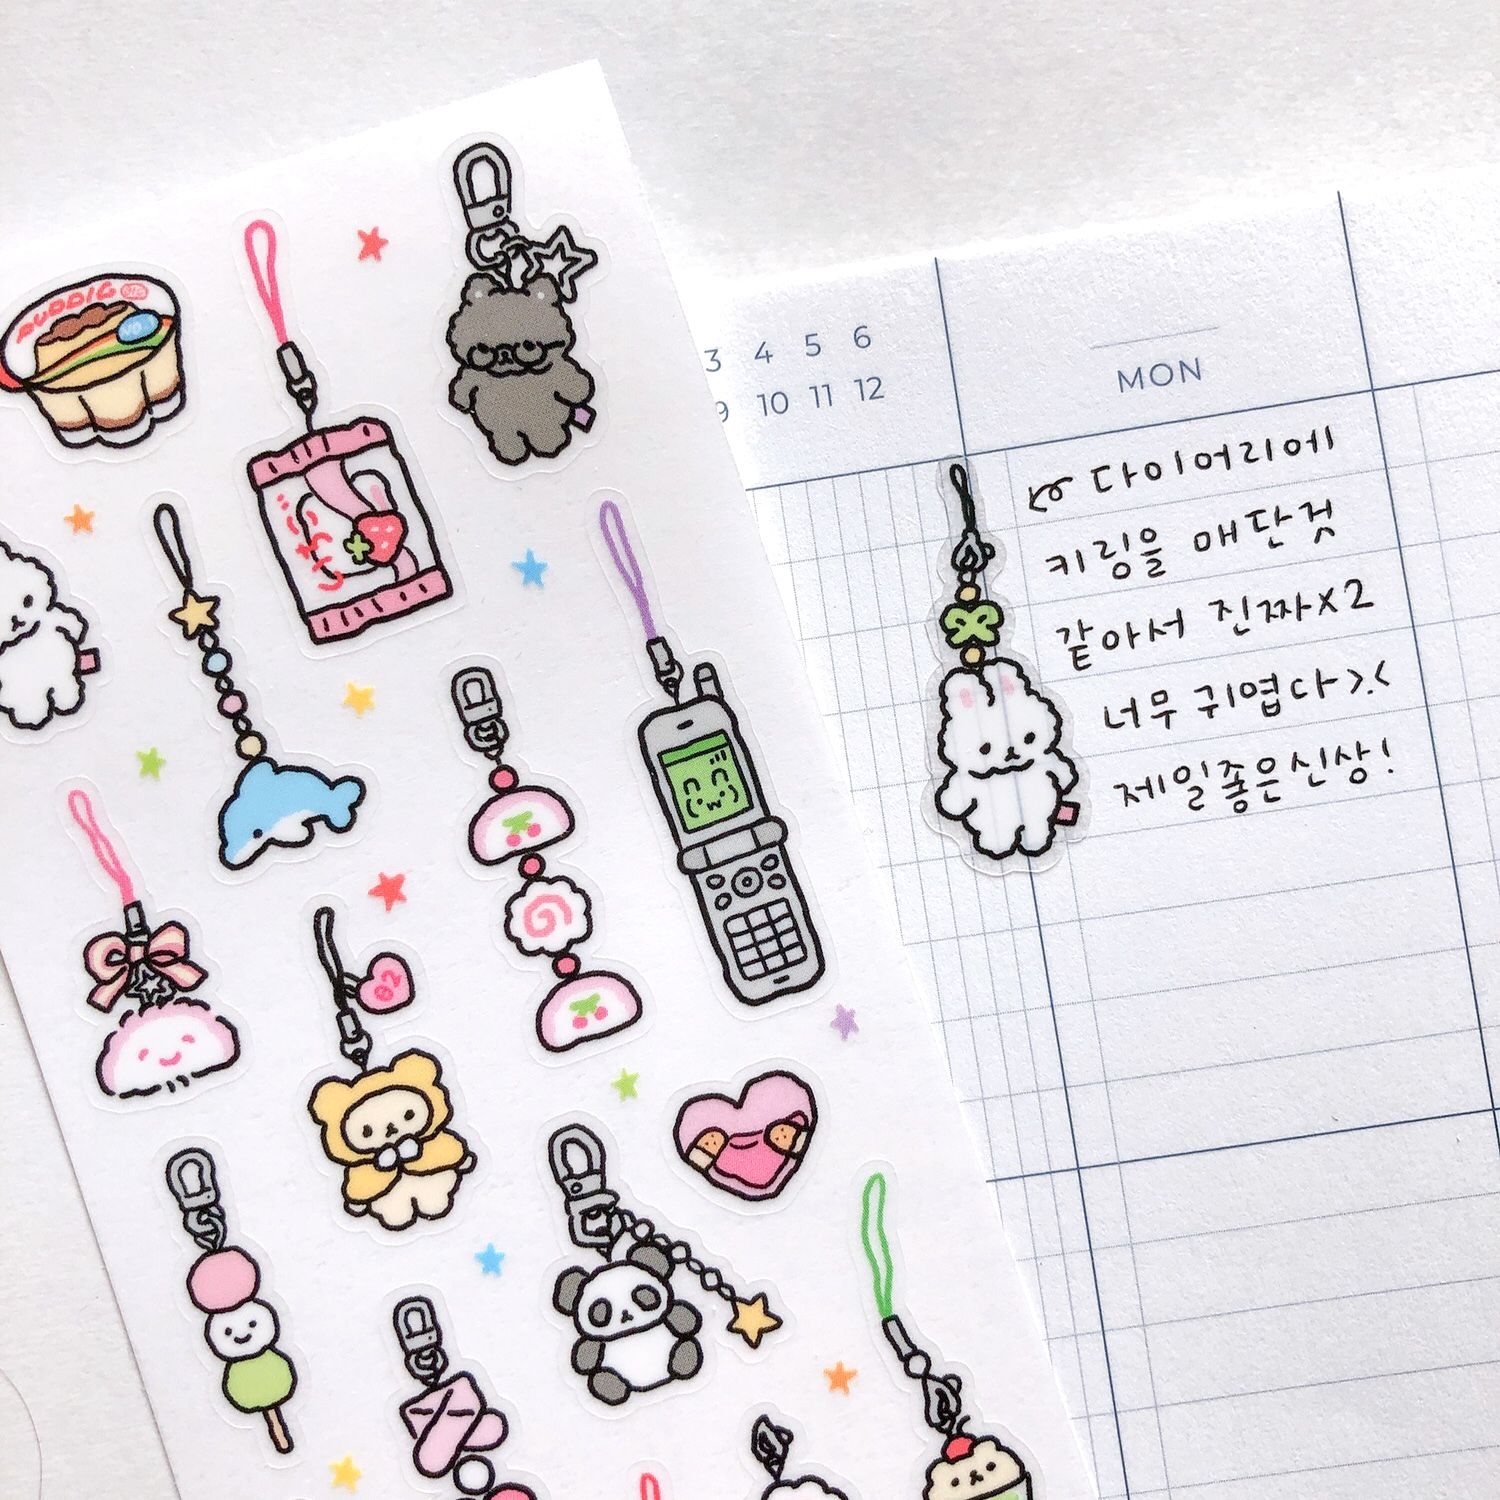 PUDDIG
NO.1
82
3 4 5 6
9 10 11 12
MON
다이어리에
키링을 매단것
같아서 진짜x2
너무 귀엽다>.<
제일좋은신상!